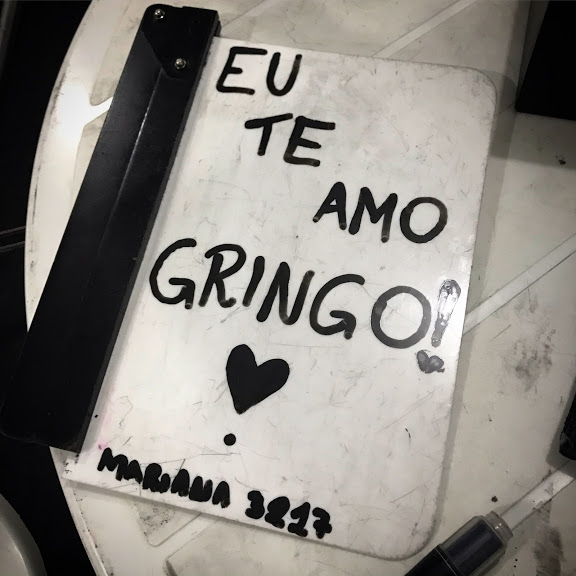 EU
TE
AMO
GRINGO!
MARIANA 3217